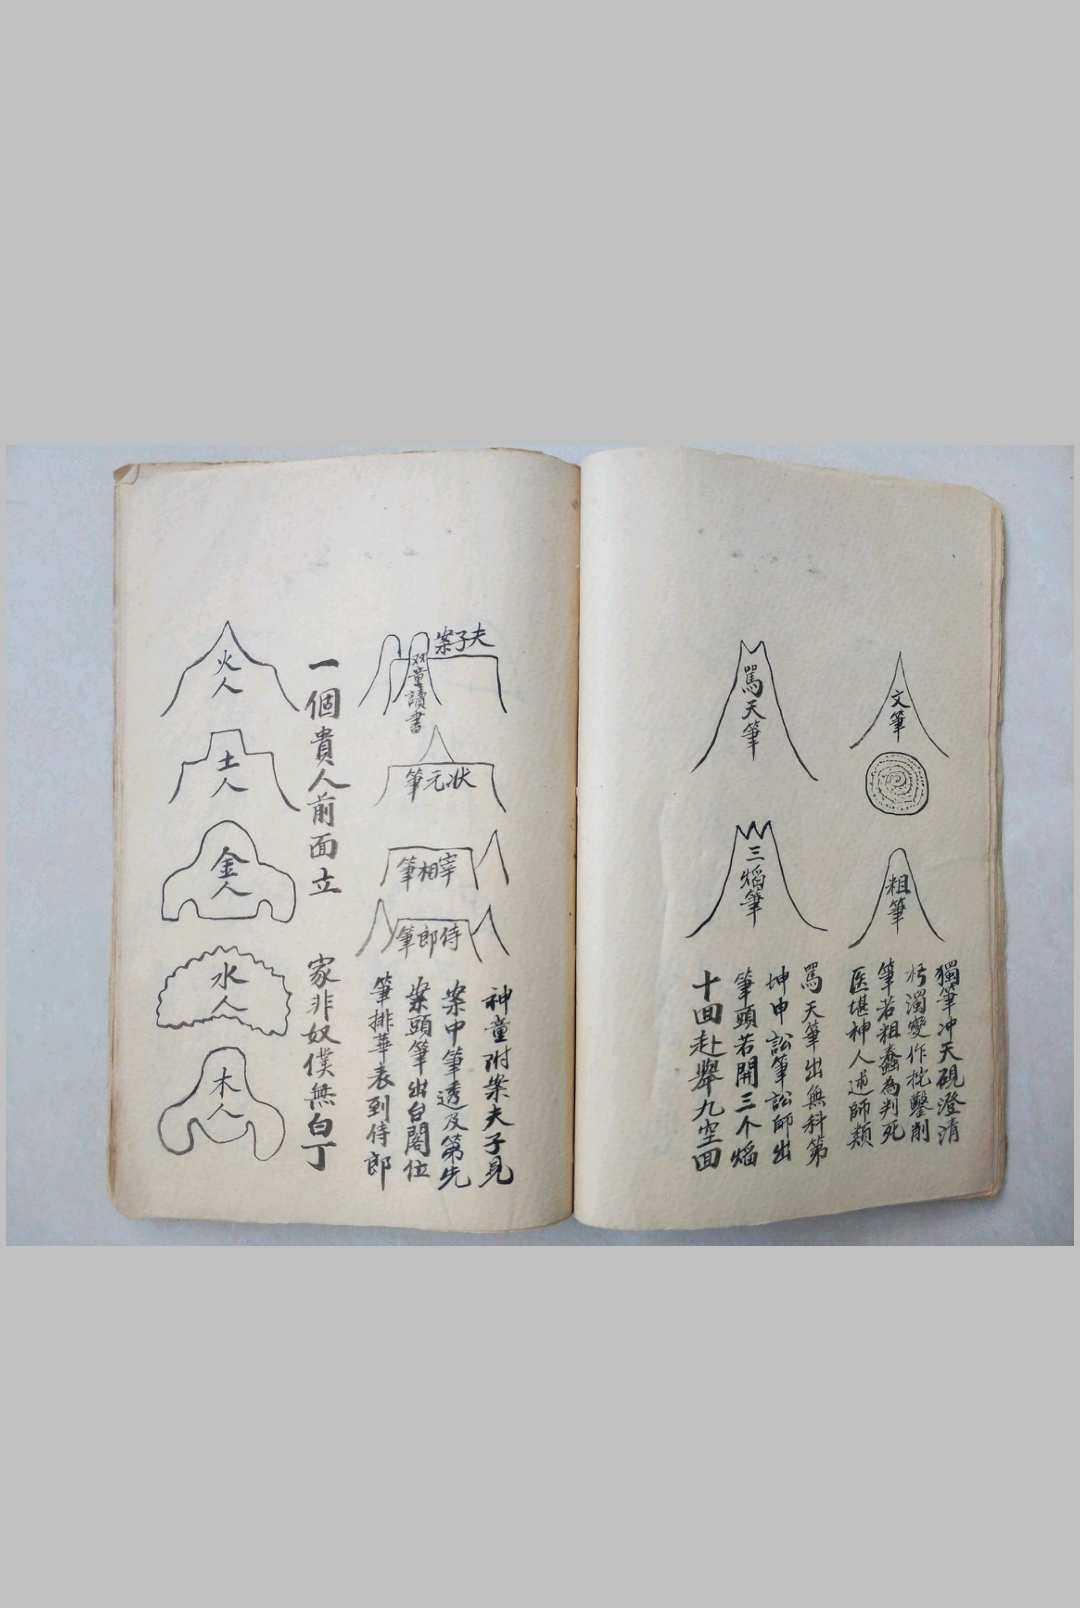 文筆
粗筆
獨筆冲天硯澄清
朽濁變作鑿削
筆若粗蠢為判死
医堪神人述師類
罵天筆
三熖筆
罵天筆出無科第
坤申訟筆訟師出
筆頭若開三个熖
十回赴舉九空回
夫子案
双童讀書
状元筆
宰相筆
侍郎筆
神童附案夫子見
案中筆透及第先
案頭筆出台閣位
筆排華表到侍郎
一個貴人前面立
家非奴僕無白丁
火人
土人
金人
水人
木人